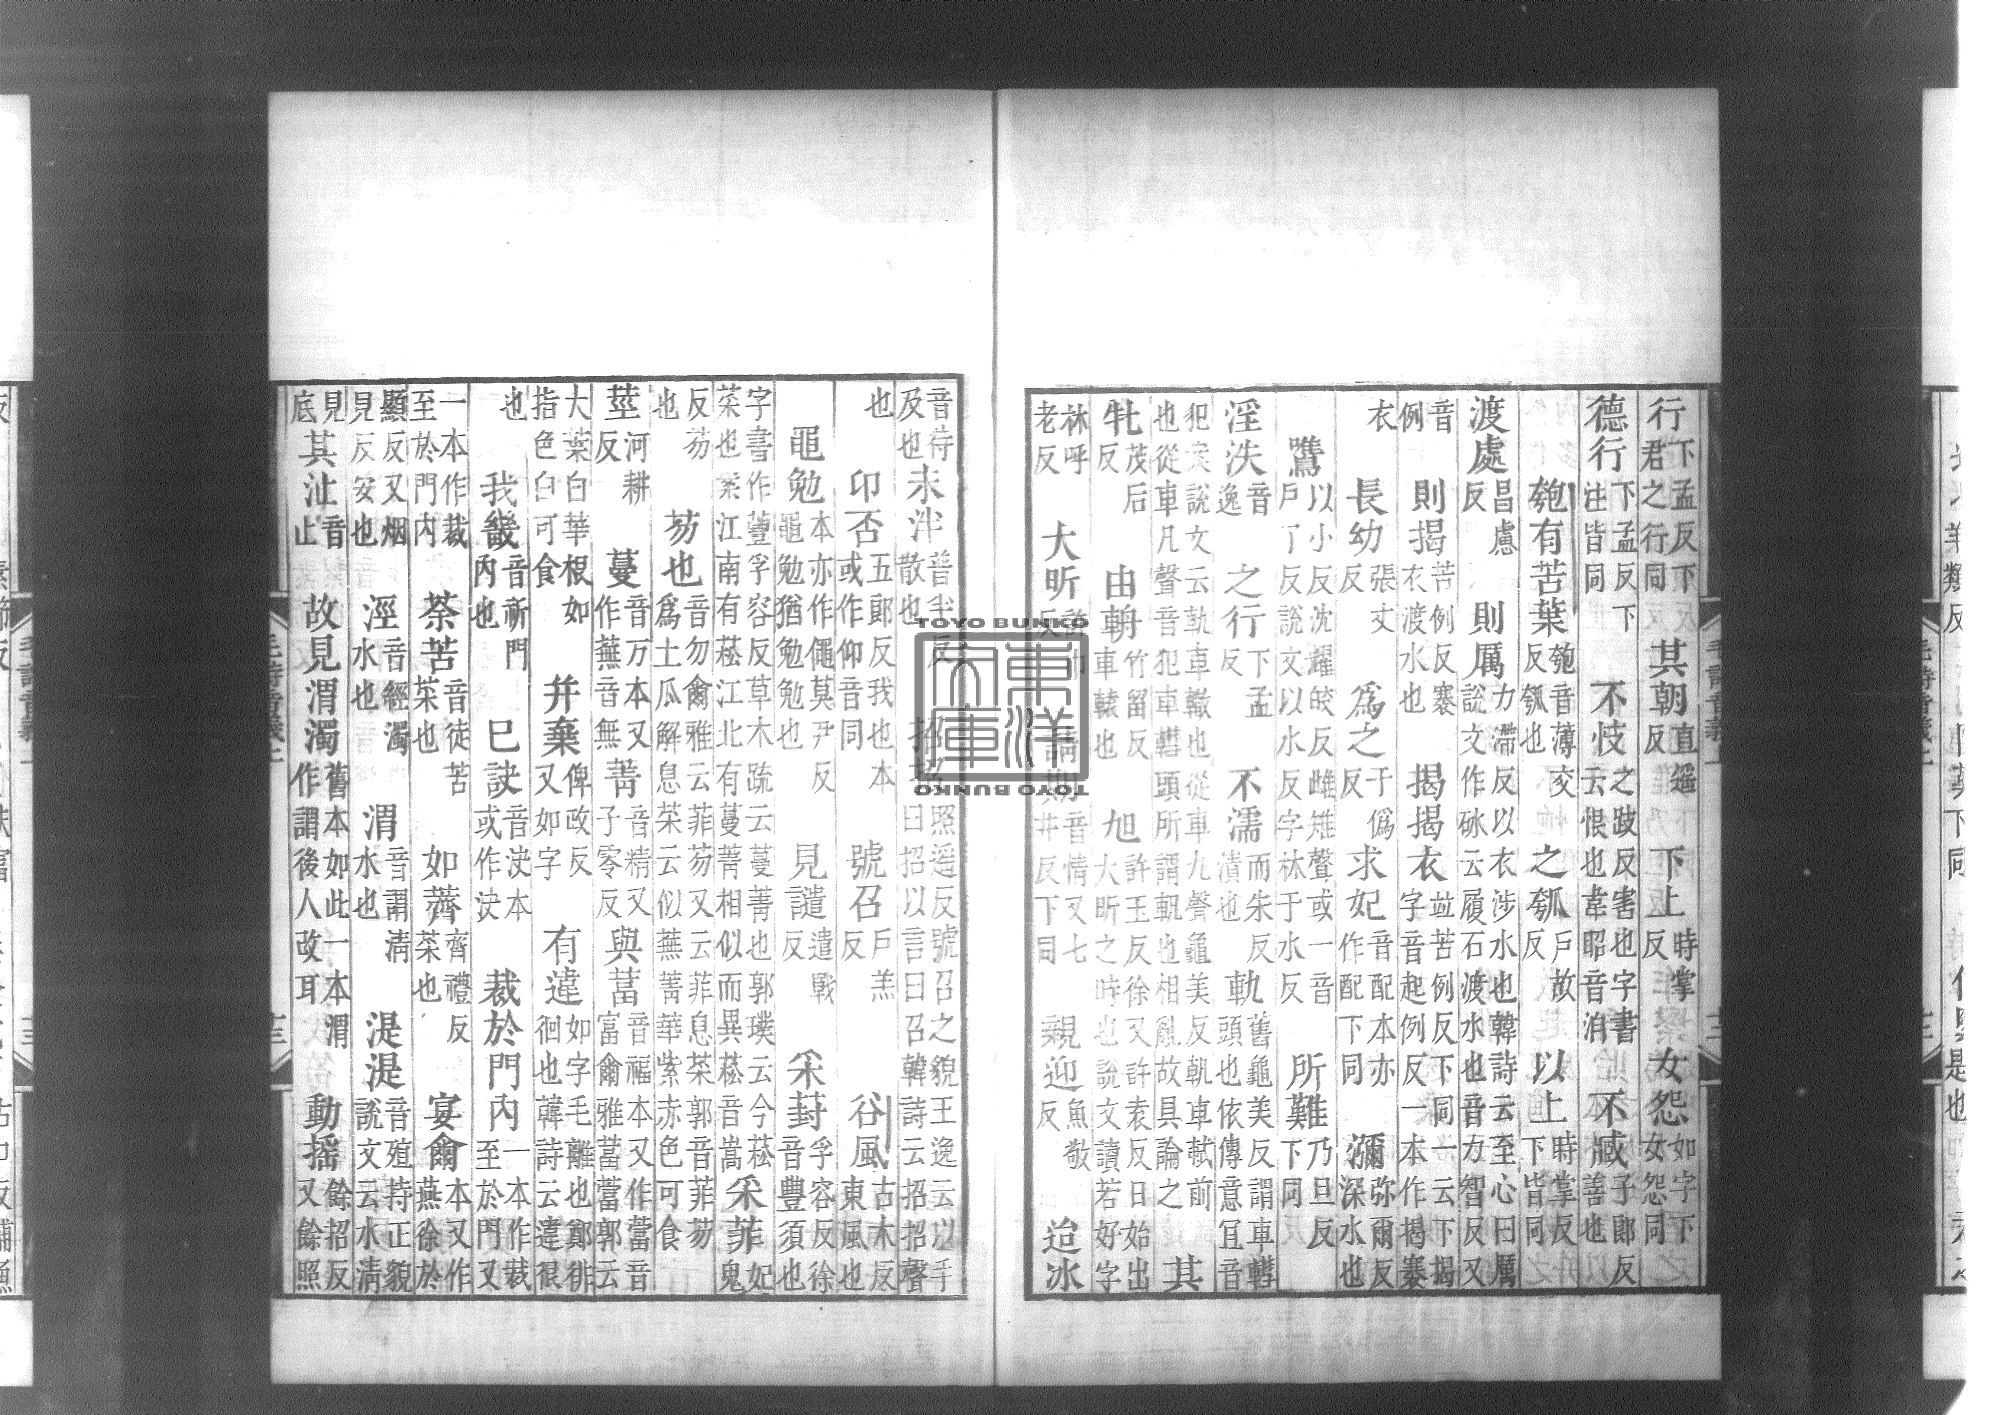 行下孟反下君之行同其朝直遥反下上時掌反女怨如字下女怨同
德行下孟反下注皆同不忮之跂反害也字書云恨也韋昭音洎不臧子郎反善也
匏有苦葉匏音薄交反瓠也之瓠戶故反以上時掌反下皆同
渡處昌慮反則厲力滯反以衣涉水也韓詩云至心曰厲說文作砅云履石渡水也音力智反又
音例則揭苦例反褰衣渡水也揭揭衣並苦例反下同一云下揭字音起例反一本作揭褰
衣長幼張丈反爲之于僞反求妃音配本亦作配下同瀰彌爾反深水也
鷕以小反沈耀皎反雌雉聲或一音戶了反說文以水反字林于水反所難乃旦反下同
淫泆音逸之行下孟反不濡而朱反漬也軌舊龜美反謂車轊頭也依傳意宜音
犯案說文云軌車轍也從車九聲龜美反軓車軾前也從車凡聲音犯車轊頭所謂軹也相亂故具論之其
牡茂后反由輈竹留反車轅也旭許玉反徐又許袁反日始出大昕之時也說文讀若好字
林呼老反大昕許巾反請期音情又七井反下同親迎魚敬反迨冰
音待及也未泮普半反散也招招照遥反號召之貌王逸云以手曰招以言曰召韓詩云招招聲
也卬否五郎反我也本或作仰音同號召戶羔反谷風古木反東風也
黽勉本亦作僶莫尹反黽勉猶勉勉也見譴遣戰反采葑孚容反徐音豐須也
字書作蘴孚容反草木疏云蔓菁也郭璞云今菘菜也案江南有菘江北有蔓菁相似而異菘音嵩采菲妃鬼
反芴也芴也音勿爾雅云菲芴又云菲息菜郭音菲芴爲土瓜解息菜云似蕪菁華紫赤色可食
莖河耕反蔓音万本又作蕪音無菁音精又子零反與葍音福本又作䔰音富爾雅葍䔰郭云
大葉白華根如指色白可食并棄俾政反又如字有違如字毛離也鄭徘徊也韓詩云違很
也我畿音祈門內也已訣音決本或作決裁於門內一本作裁至於門又
一本作裁至於門內荼苦音徒苦菜也如薺齊禮反菜也宴爾本又作燕徐於
顯反又烟見反安也涇音經濁水也渭音謂清水也湜湜音殖持正貌說文云水清
見底其沚音止故見渭濁舊本如此一本渭作謂後人改耳動搖餘招反又餘照
毛詩音義上
TOYO BUNKO
東洋文庫
TOYO BUNKO